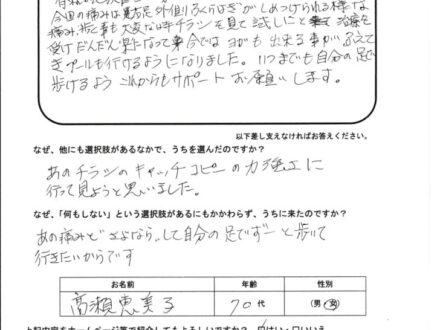 今回の痛みは 足 外側 ふくらはぎが しめつけられる様な
痛み 歩く事も大変な チラシを見て試しにと 治療を
受けだんだん楽になって 今では ヨガも出来る事がふえて
きプールも行けるようになりました。いつまでも自分の足で
歩けるよう これからもサポート お願いします。
以下差し支えなければお答えください。
なぜ、他にも選択肢があるなかで、うちを選んだのですか？
あのチラシのキャッチコピーの力強さに
行って見ようと思いました。
なぜ、「何もしない」という選択肢があるにもかかわらず、うちに来たのですか？
あの痛みと さよならして自分の足でずーと歩いて
行きたいからです
お名前 年齢 性別
高瀬恵美子 70代 (男・女)
上記内容をホームページ等で紹介してもよろしいですか？ はい・いいえ